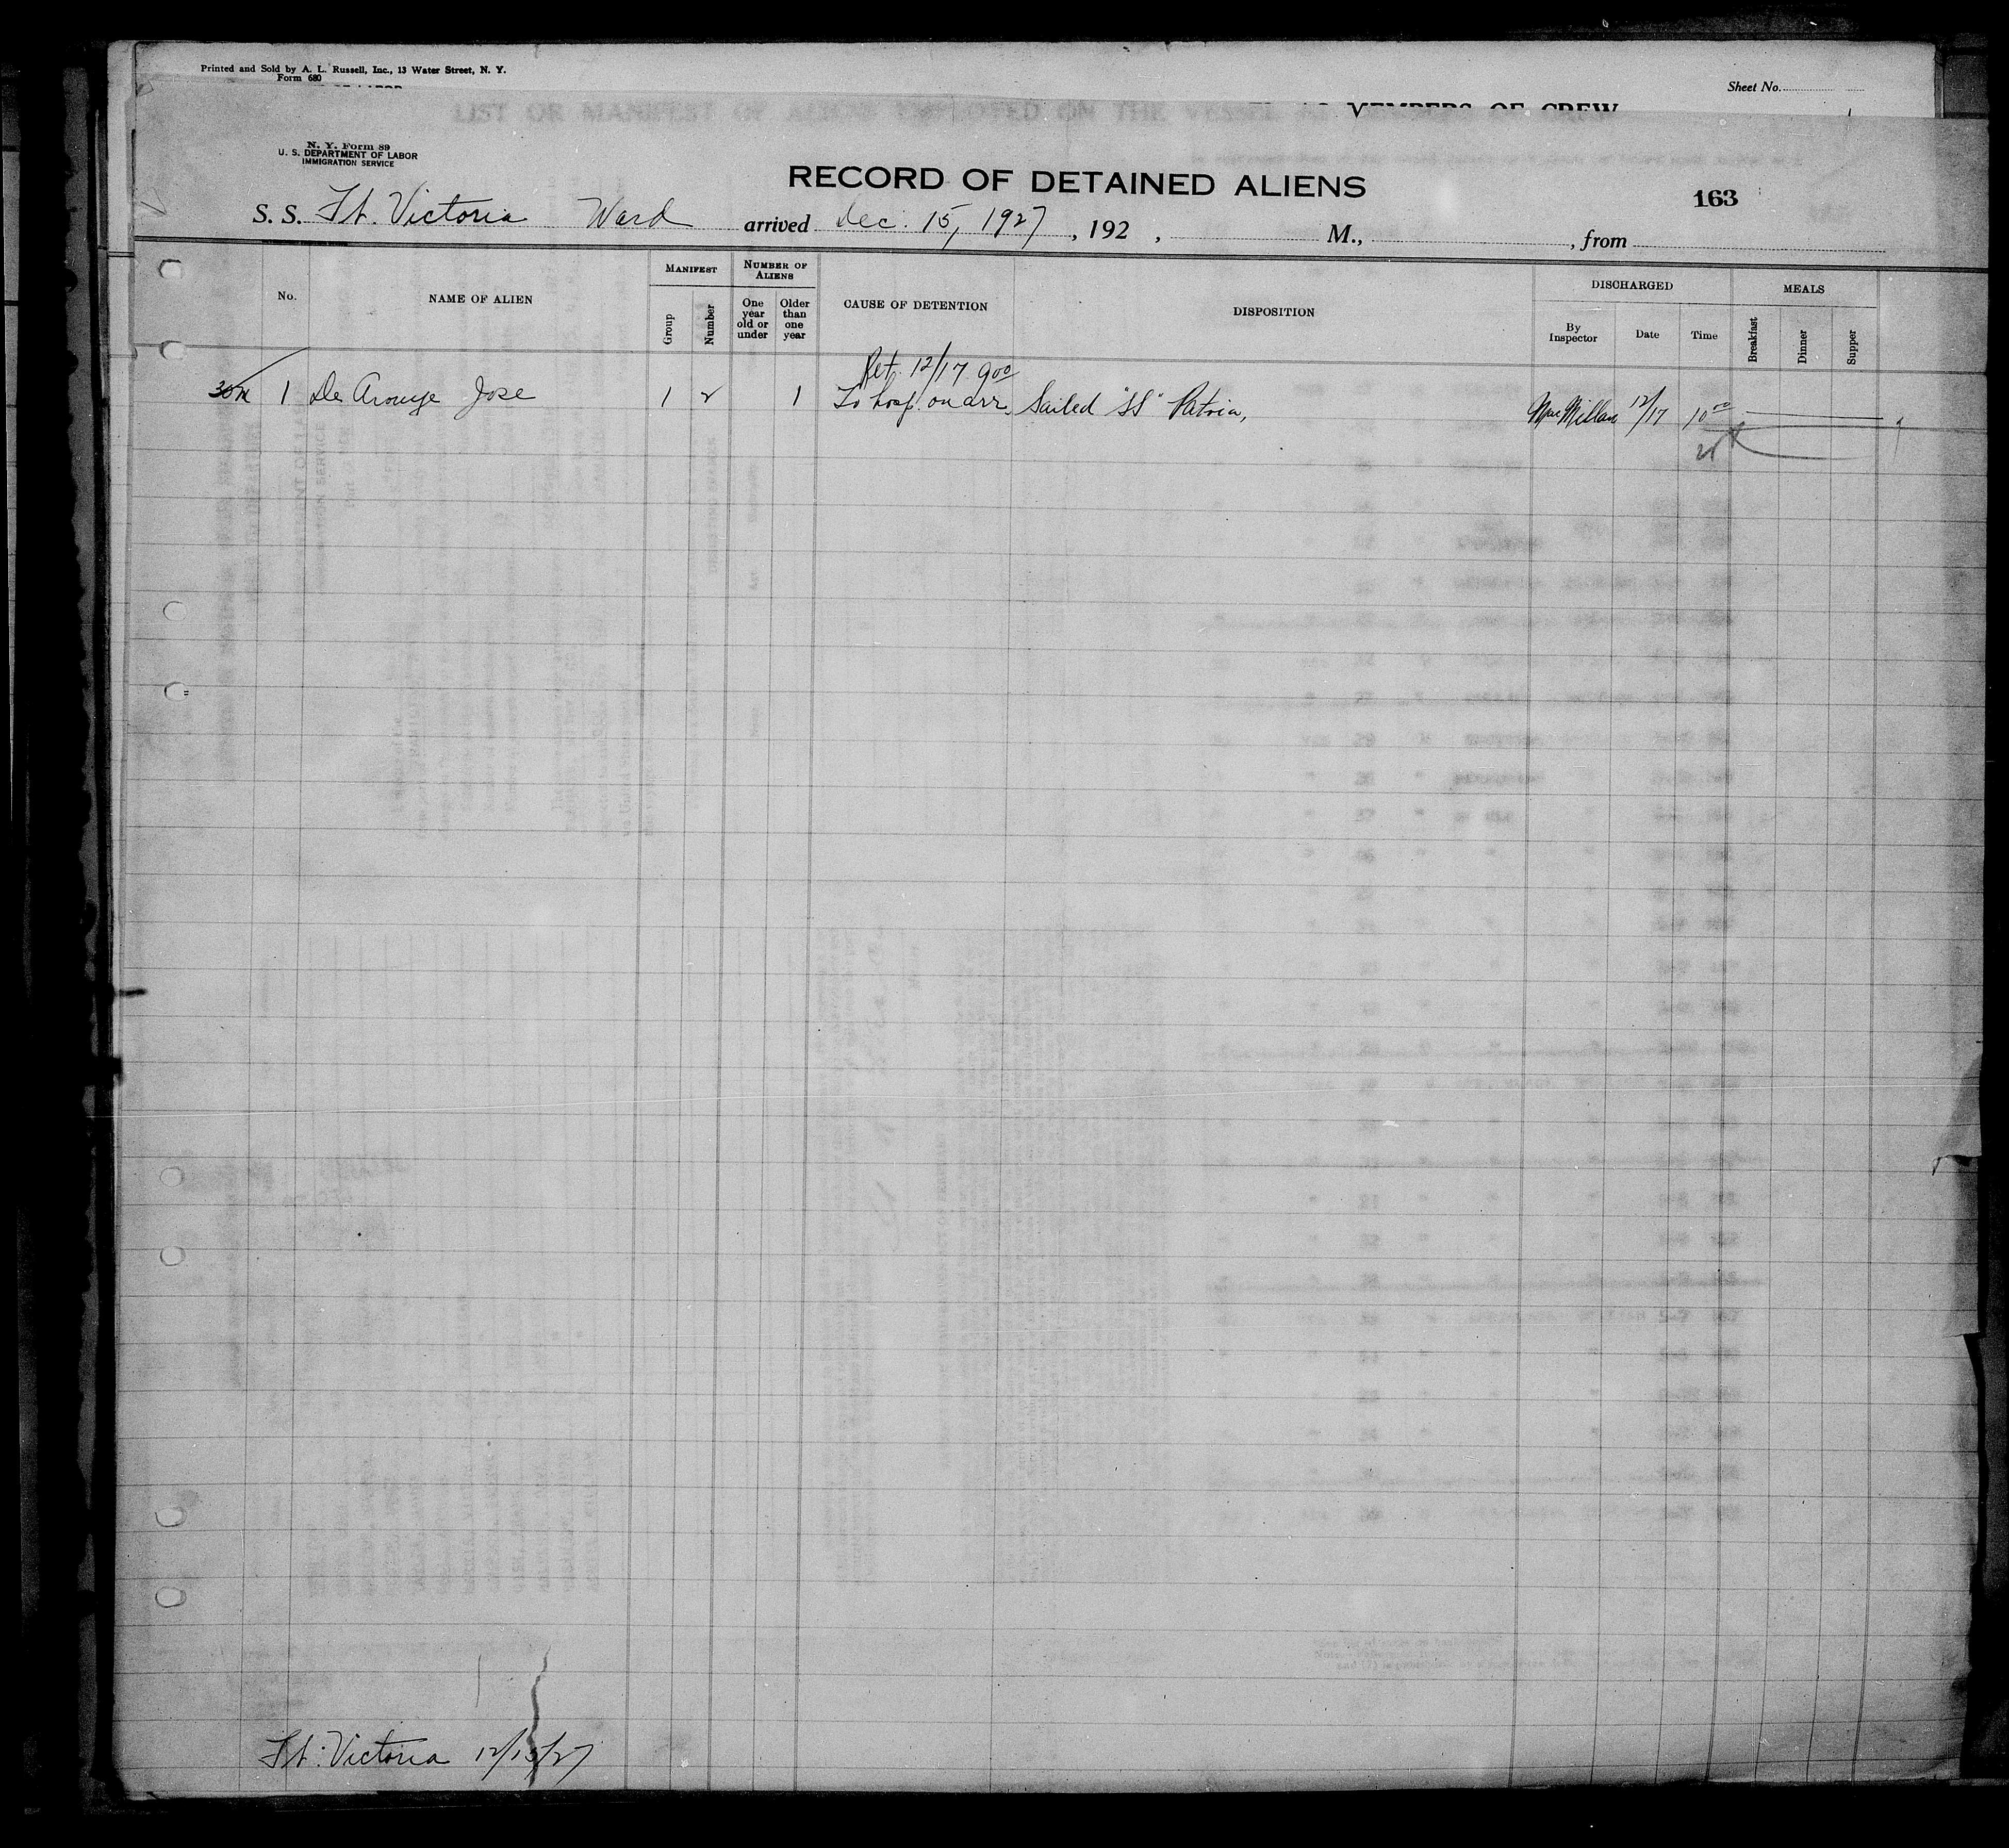 Printed and Sold by A. L. Russell, Inc., 13 Water Street, N. Y.
Form 680
Sheet No.
LIST OR MANIFEST OF ALIENS EMPLOYED ON THE VESSEL AS MEMBERS OF CREW
N. Y. Form 89
U. S. DEPARTMENT OF LABOR
IMMIGRATION SERVICE
RECORD OF DETAINED ALIENS
163
S. S. Ft. Victoria Ward arrived Dec. 15, 1927, 192 , M., , from
No. NAME OF ALIEN MANIFEST Group Number NUMBER OF ALIENS One year old or under Older than one year CAUSE OF DETENTION DISPOSITION DISCHARGED By Inspector Date Time MEALS Breakfast Dinner Supper
Ret. 12/17 9 00
1 De Jose 1 2 1 To hosp. on arr. Sailed "SS" Patria, MacMillan 12/17 10 00
Ft. Victoria 12/15/27